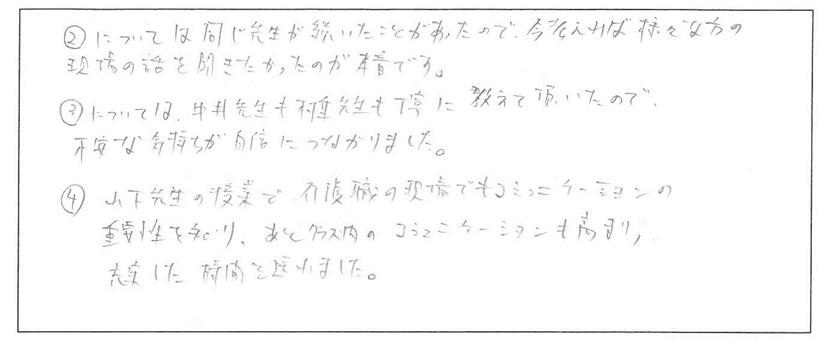 ②については同じ先生が続いたことがあったので、今考えれば様々な方の
現場の話を聞きたかったのが本音です。
③については、中井先生も先生も丁寧に教えて頂いたので、
不安な気持ちが自信につながりました。
④ 山下先生の授業で、介護職の現場でもコミュニケーションの
重要性を知り、あとクラス内のコミュニケーションも高まり、
充実した時間を送れました。